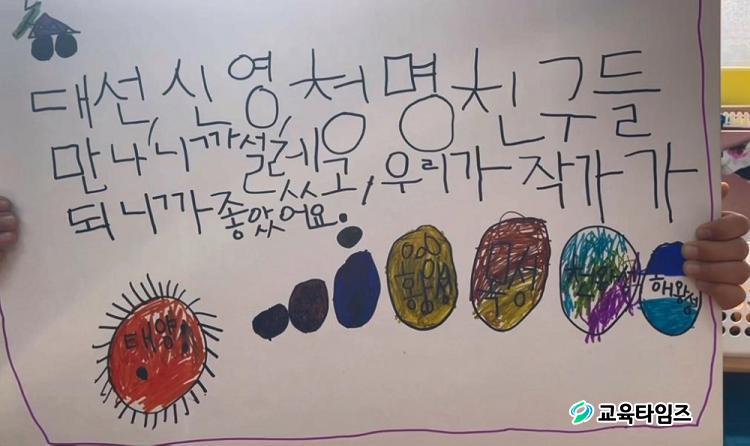 대선,신영,청명친구들
만나니까설렜고,우리가작가가
되니까좋았어요.
목성
천왕성
해왕성
태양
교육타임즈